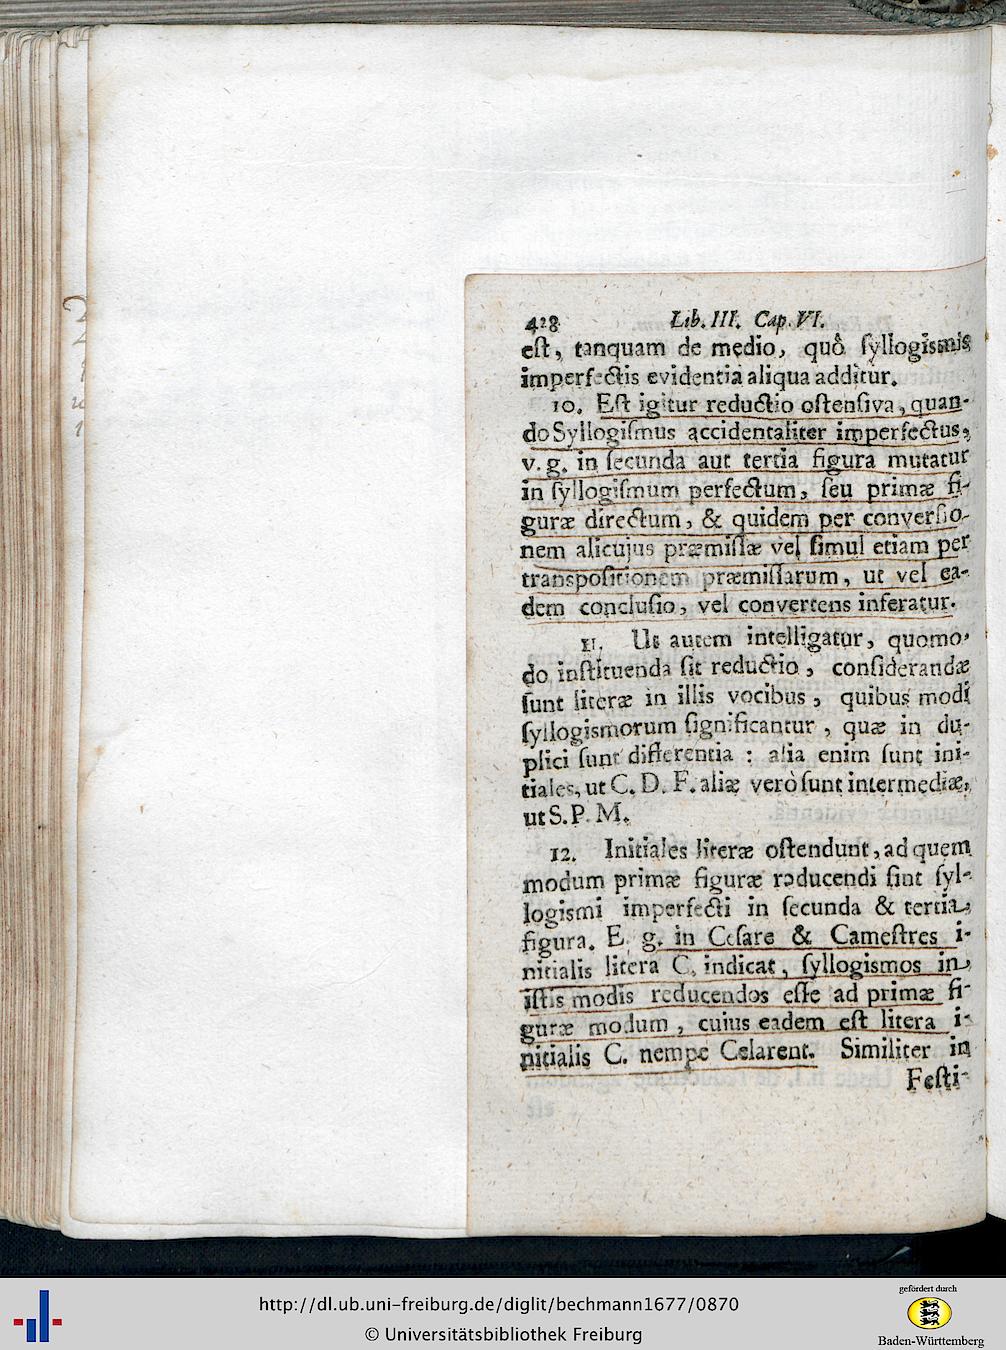 428 Lib. III. Cap. VI.
eſt, tanquam de medio, quô ſyllogismis
imperfectis evidentia aliqua additur.
10. Eſt igitur reductio oſtenſiva, quan-
do Syllogiſmus accidentaliter imperfectus,
v. g. in ſecunda aut tertia figura mutatur
in ſyllogiſmum perfectum, ſeu primæ fi-
guræ directum, & quidem per converſio-
nem alicujus præmiſſæ vel ſimul etiam per
transpoſitionem præmiſſarum, ut vel ea-
dem concluſio, vel convertens inferatur.
11. Ut autem intelligatur, quomo-
do inſtituenda ſit reductio, conſiderandæ
ſunt literæ in illis vocibus, quibus modi
ſyllogismorum ſignificantur, quæ in du-
plici ſunt differentia : alia enim ſunt ini-
tiales, ut C. D. F. aliæ verò ſunt intermediæ,
ut S. P. M.
12. Initiales literæ oſtendunt, ad quem
modum primæ figuræ reducendi ſint ſyl-
logismi imperfecti in ſecunda & tertia
figura. E. g. in Ceſare & Cameſtres i-
nitialis litera C. indicat, ſyllogismos in
iſtis modis reducendos eſſe ad primæ fi-
guræ modum, cuius eadem eſt litera i-
nitialis C. nempe Celarent. Similiter in
Feſti-
http://dl.ub.uni-freiburg.de/diglit/bechmann1677/0870
© Universitätsbibliothek Freiburg
gefördert durch
Baden-Württemberg